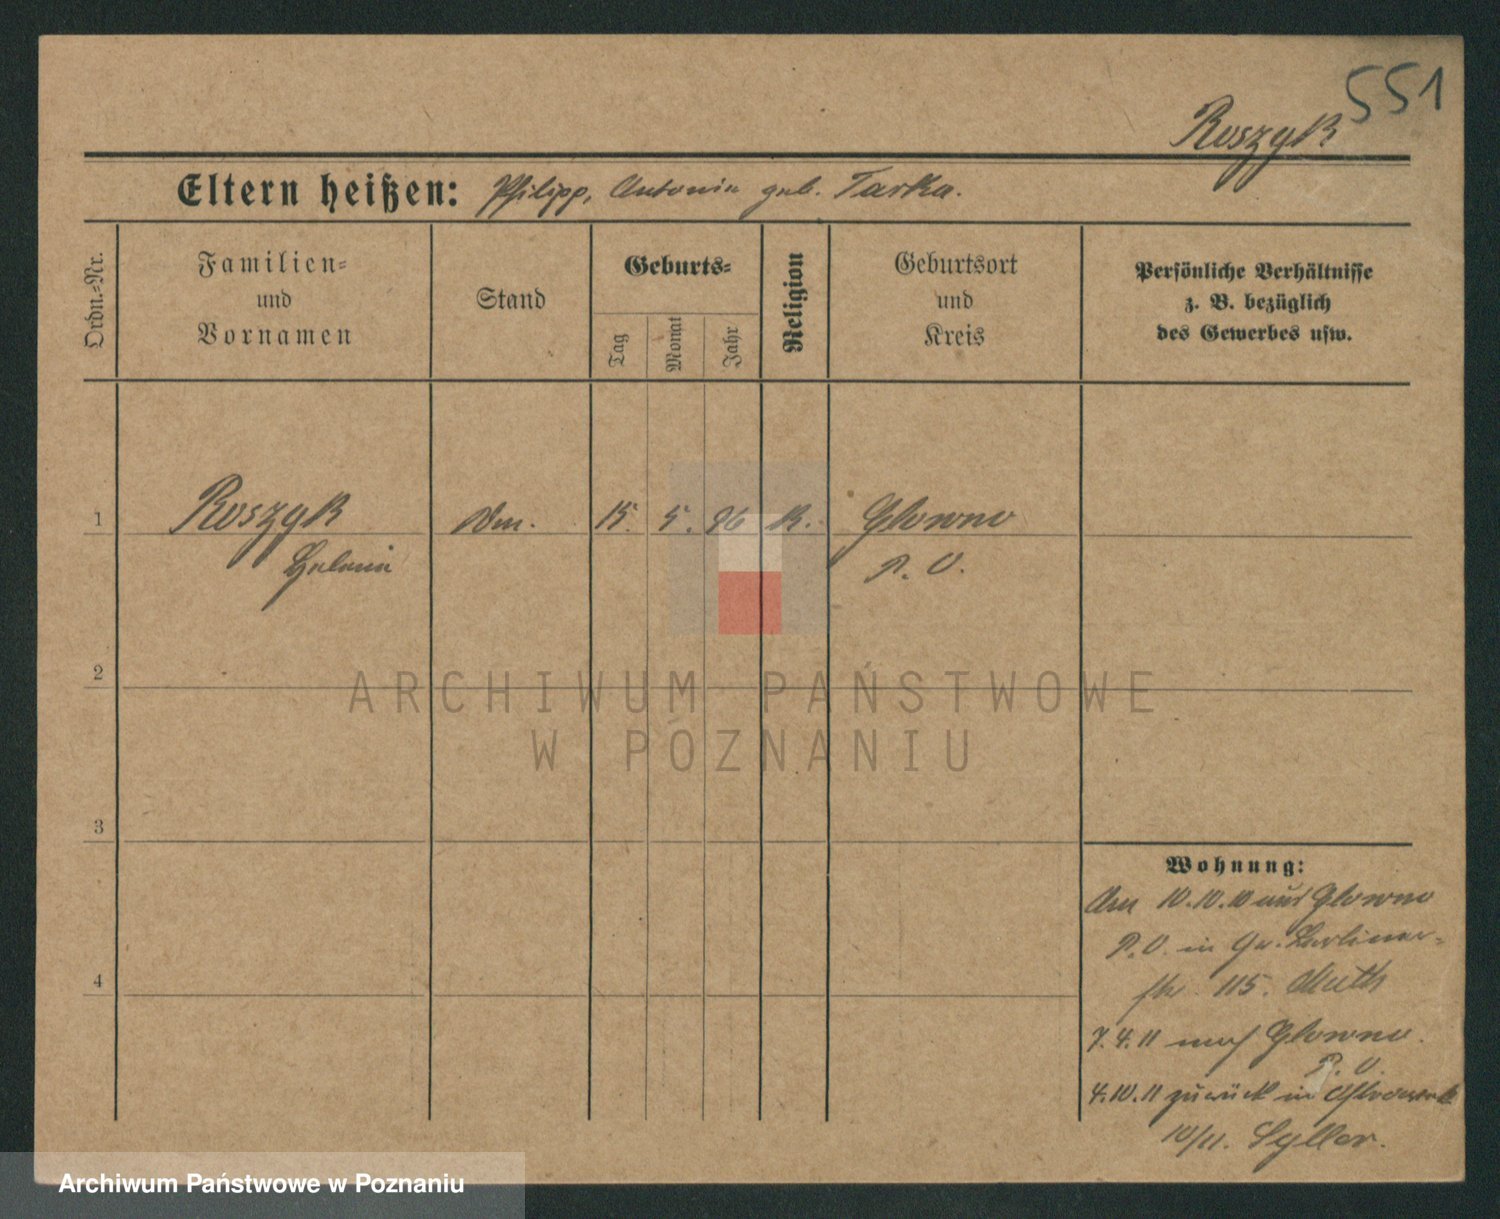 551
Roszyk
Eltern heißen: Philipp, Antonie geb. Tarka.
Ordn.-Nr.
Familien-
und
Vornamen
Stand
Geburts-
Tag
Monat
Jahr
Religion
Geburtsort
und
Kreis
Persönliche Verhältnisse
z. B. bezüglich
des Gewerbes usw.
1 Roszyk 15. 5. 96 K. Glowno
P. O.
2
ARCHIWUM PAŃSTWOWE
W POZNANIU
3
4
Wohnung:
10.10.10 aus Glowno
P. O. in Gr. Berliner-
str. 115.
7.4.11 nach Glowno.
P. O.
4.10.11 zurück in
10/11.
Archiwum Państwowe w Poznaniu